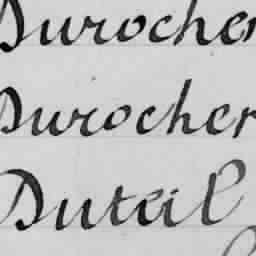 Durocher
Durocher
Duteil